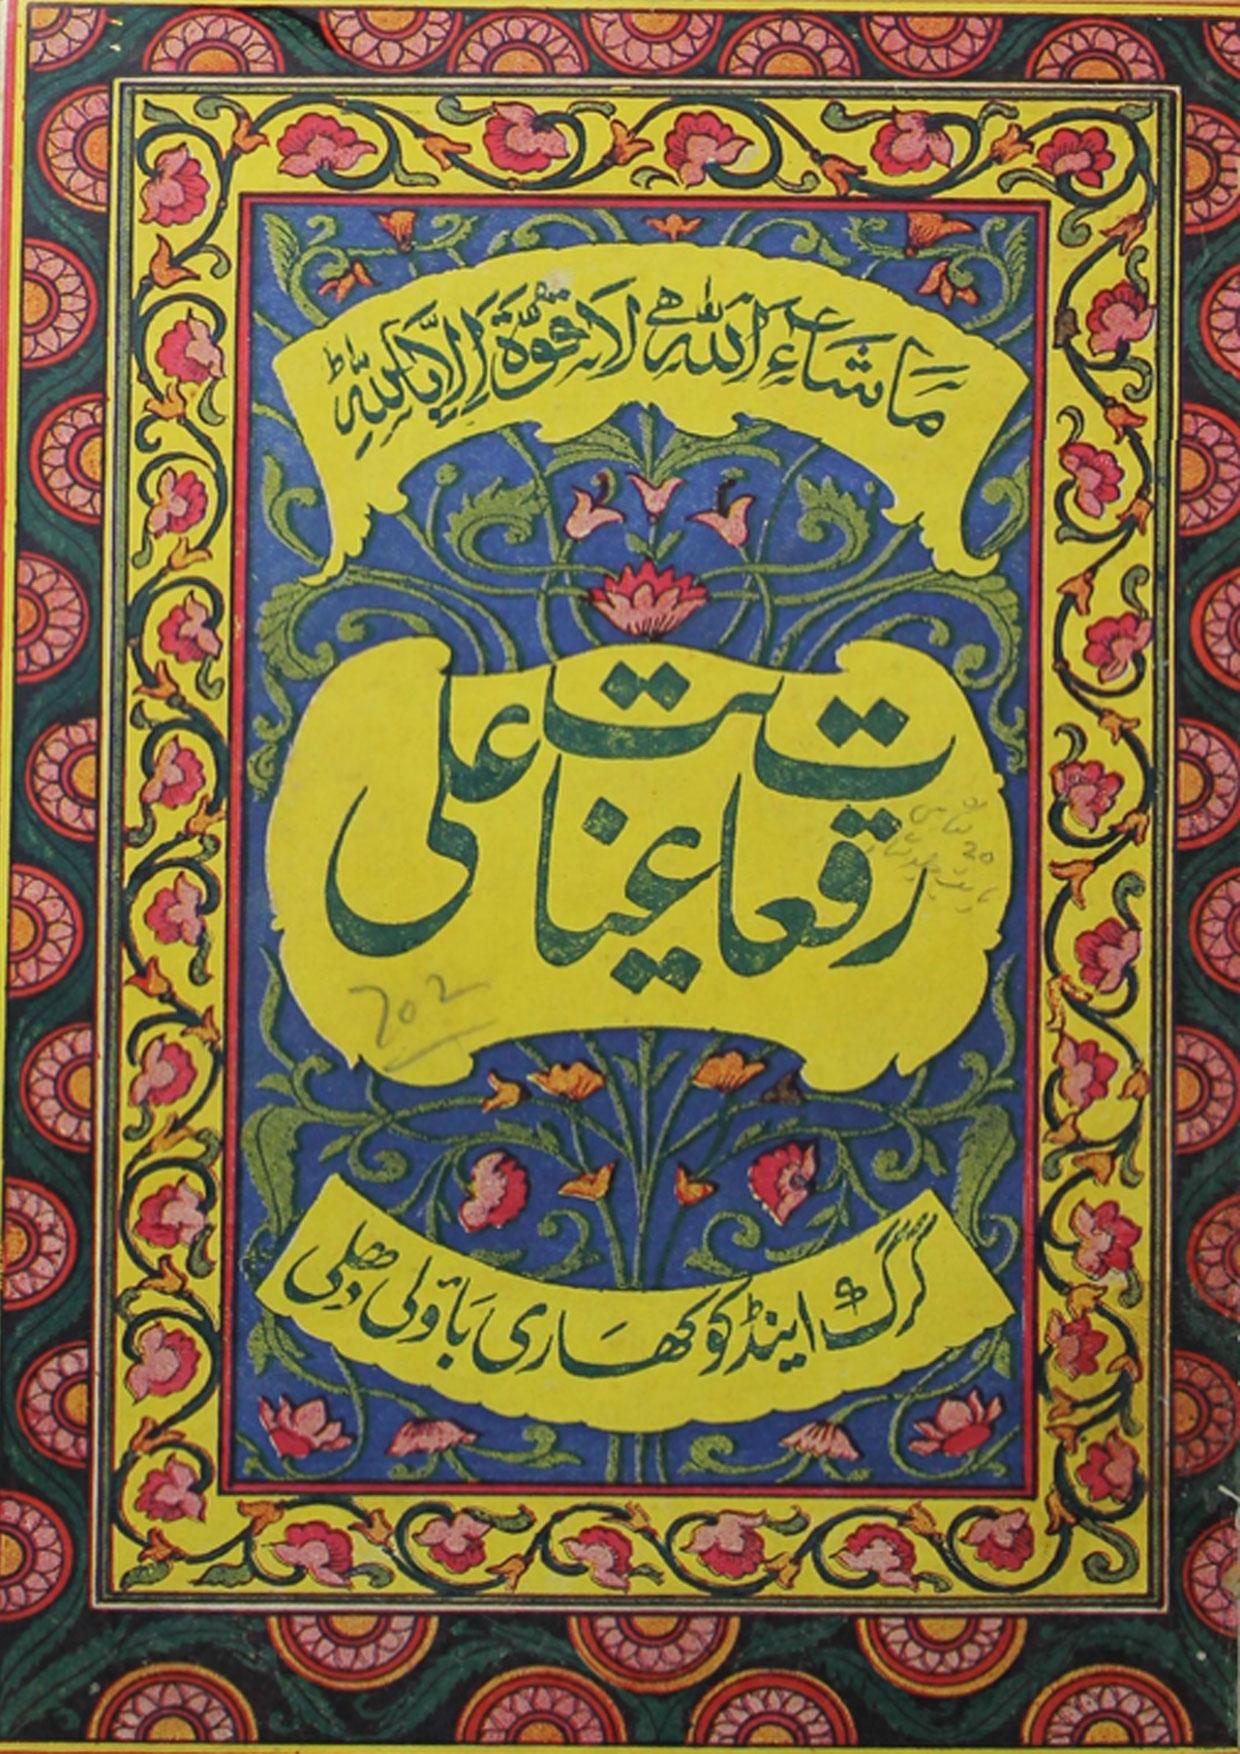 مَاشَآءَ اللّٰهُ لَاقُوَّةَ اِلَّا بِاللّٰهِ ط
رقعات عنایت علی
702
20
گرگ اینڈ کو کھاری باؤلی دھلی